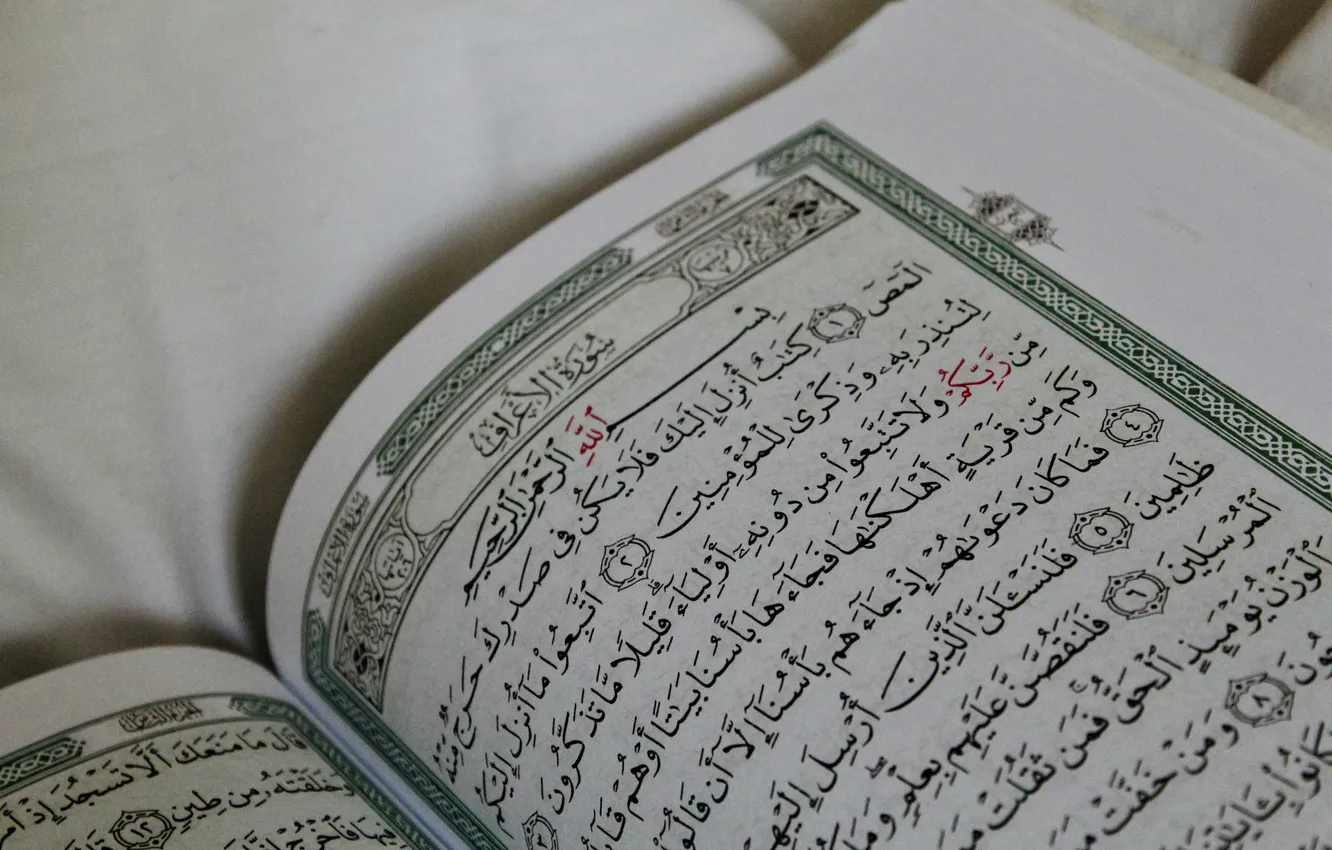 سُورَةُ الْأَعْرَافِ
بِسْمِ ٱللَّهِ ٱلرَّحْمَٰنِ ٱلرَّحِيمِ
الٓمٓصٓ ١ كِتَٰبٌ أُنزِلَ إِلَيْكَ فَلَا يَكُن فِى صَدْرِكَ حَرَجٌ مِّنْهُ
لِتُنذِرَ بِهِۦ وَذِكْرَىٰ لِلْمُؤْمِنِينَ ٢ ٱتَّبِعُوا۟ مَآ أُنزِلَ إِلَيْكُم
مِّن رَّبِّكُمْ وَلَا تَتَّبِعُوا۟ مِن دُونِهِۦٓ أَوْلِيَآءَ ۗ قَلِيلًا مَّا تَذَكَّرُونَ ٣
وَكَم مِّن قَرْيَةٍ أَهْلَكْنَٰهَا فَجَآءَهَا بَأْسُنَا بَيَٰتًا أَوْ هُمْ
٤ فَمَا كَانَ دَعْوَىٰهُمْ إِذْ جَآءَهُم بَأْسُنَآ إِلَّآ أَن قَالُوٓا۟
ظَٰلِمِينَ ٥ فَلَنَسْـَٔلَنَّ ٱلَّذِينَ أُرْسِلَ إِلَيْهِمْ
ٱلْمُرْسَلِينَ ٦ فَلَنَقُصَّنَّ عَلَيْهِم بِعِلْمٍ ۖ وَمَا
وَٱلْوَزْنُ يَوْمَئِذٍ ٱلْحَقُّ ۚ فَمَن ثَقُلَتْ
٨ وَمَنْ خَفَّتْ
كَانُوا۟ بِـَٔايَٰتِنَا
قَالَ مَا مَنَعَكَ أَلَّا تَسْجُدَ إِذْ
وَخَلَقْتَهُۥ مِن طِينٍ ١٢